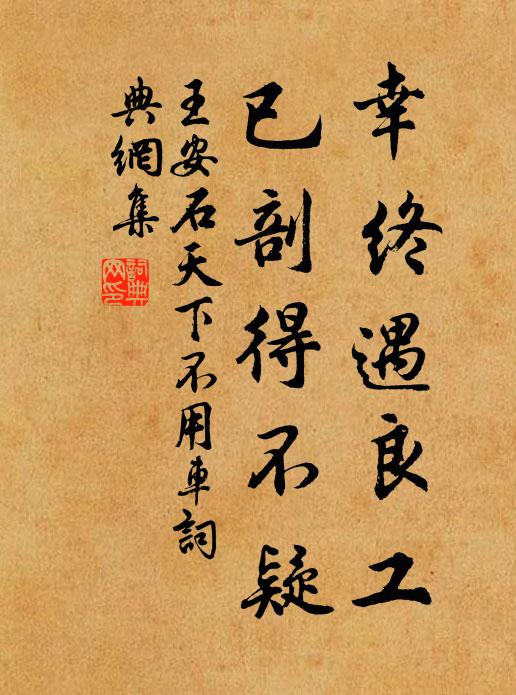 幸终遇良工
已剖得不疑
王安石天下不用車詞
典網集
詞典网印